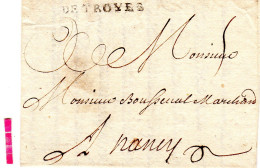 DE TROYES
Monsieur
Monsieur Boussenut Marchand
A nancy